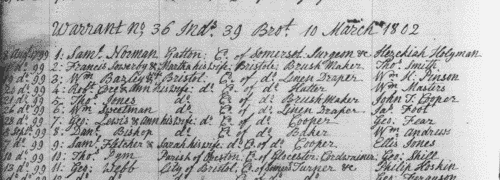 Warrant No 36 Indt. 39 Brot. 10 March 1802
99 1: Saml. Norman Yatton Co. of Somerset Surgeon & Hezekiah Holyman
dt. 99 2: Francis & Martha his wife Bristol: Brush Maker Thos. Smith
dt. 99 3: Wm. Bristol Co. of do. Linen Draper Wm. K. Pinson
dt. 99 4: Robt. & Ann his wife do. Co. of do. Hatter Wm. Masters
dt. 99 5: Thos. Jones do. Co. of do. Brush Maker John T. Cooper
dt. 99 6: Wm. do. Co. of do. Linen Draper Jas. Foot
dt. 99 7: Geo: Lewis & Ann his wife do. Co. of do. Cooper Geo: Fear
Sept. 99 8: Danl. Bishop do. Co. of do. Baker Wm. Andrews
7 dt. 99 9: Saml. Fletcher & Sarah his wife do. Co. of do. Cooper Ellis Jones
10 dt. 99 10: Thos. Pym Parish of Co. of Glocester Cordwainer Geo: Shill
13 dt. 99 11: Geo: Webb City of Bristol, Co. of Turner &c: Philip Hoskin
Geo: Ferguson